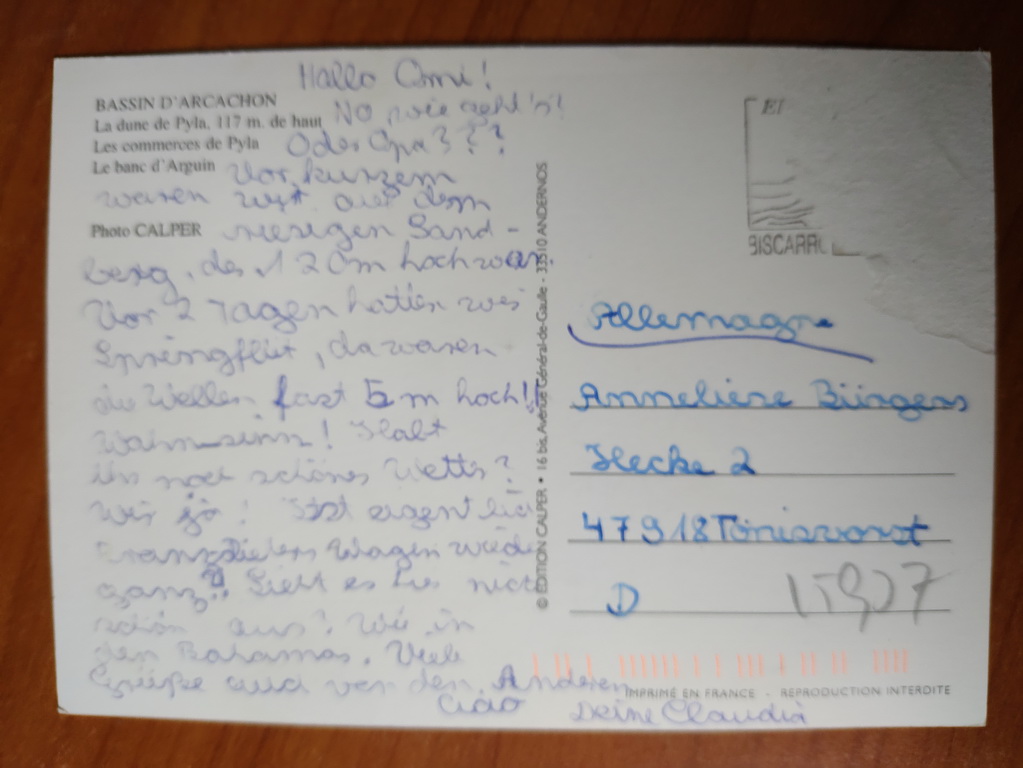 Hallo Omi!
BASSIN D'ARCACHON
La dune de Pyla, 117 m. de haut
Les commerces de Pyla
Le banc d'Arguin
Photo CALPER
No wie geht's?
Oder Opa???
Vor kurzem
waren wir auf dem
riesigen Sand-
berg, der 120m hoch war.
Vor 2 Tagen hatten wir
Springflut, da waren
die Wellen fast 5m hoch!!
Wahnsinn! Habt
ihr noch schönes Wetter?
Wir ja! Ist eigentlich
Wagen wieder
ganz? Sieht es hier nicht
schön aus? Wie in
den Bahamas. Viele
Grüße auch von den Anderen
Ciao Deine Claudia
© EDITION CALPER • 16 bis, Avenue Général-de-Gaulle - 33510 ANDERNOS
BISCARR
Allemagne
Anneliese Bürgers
Hecke 2
47918 Tönisvorst
D
IMPRIMÉ EN FRANCE - REPRODUCTION INTERDITE